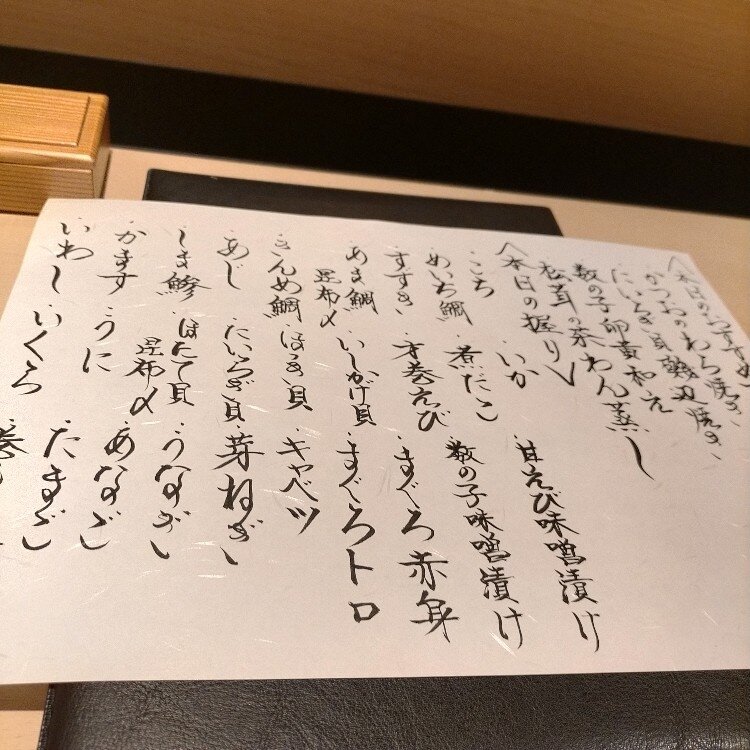 ＜本日のおすすめ
かつおのわら焼き
たいらぎ貝磯辺焼き
数の子卵黄和え
松茸の茶わん蒸し
＜本日の握り＞
・こち
・いか
・甘えび味噌漬け
・めいち鯛
・煮だこ
・数の子味噌漬け
・すずき
・才巻えび
・まぐろ赤身
・あま鯛昆布〆
・いしがけ貝
・まぐろトロ
・きんめ鯛
・ほっき貝
・キャベツ
・あじ
・たいらぎ貝
・芽ねぎ
・しま鯵
・ほたて貝昆布〆
・うなぎ
・かます
・うに
・あなご
・いわし
・いくら
・たまご